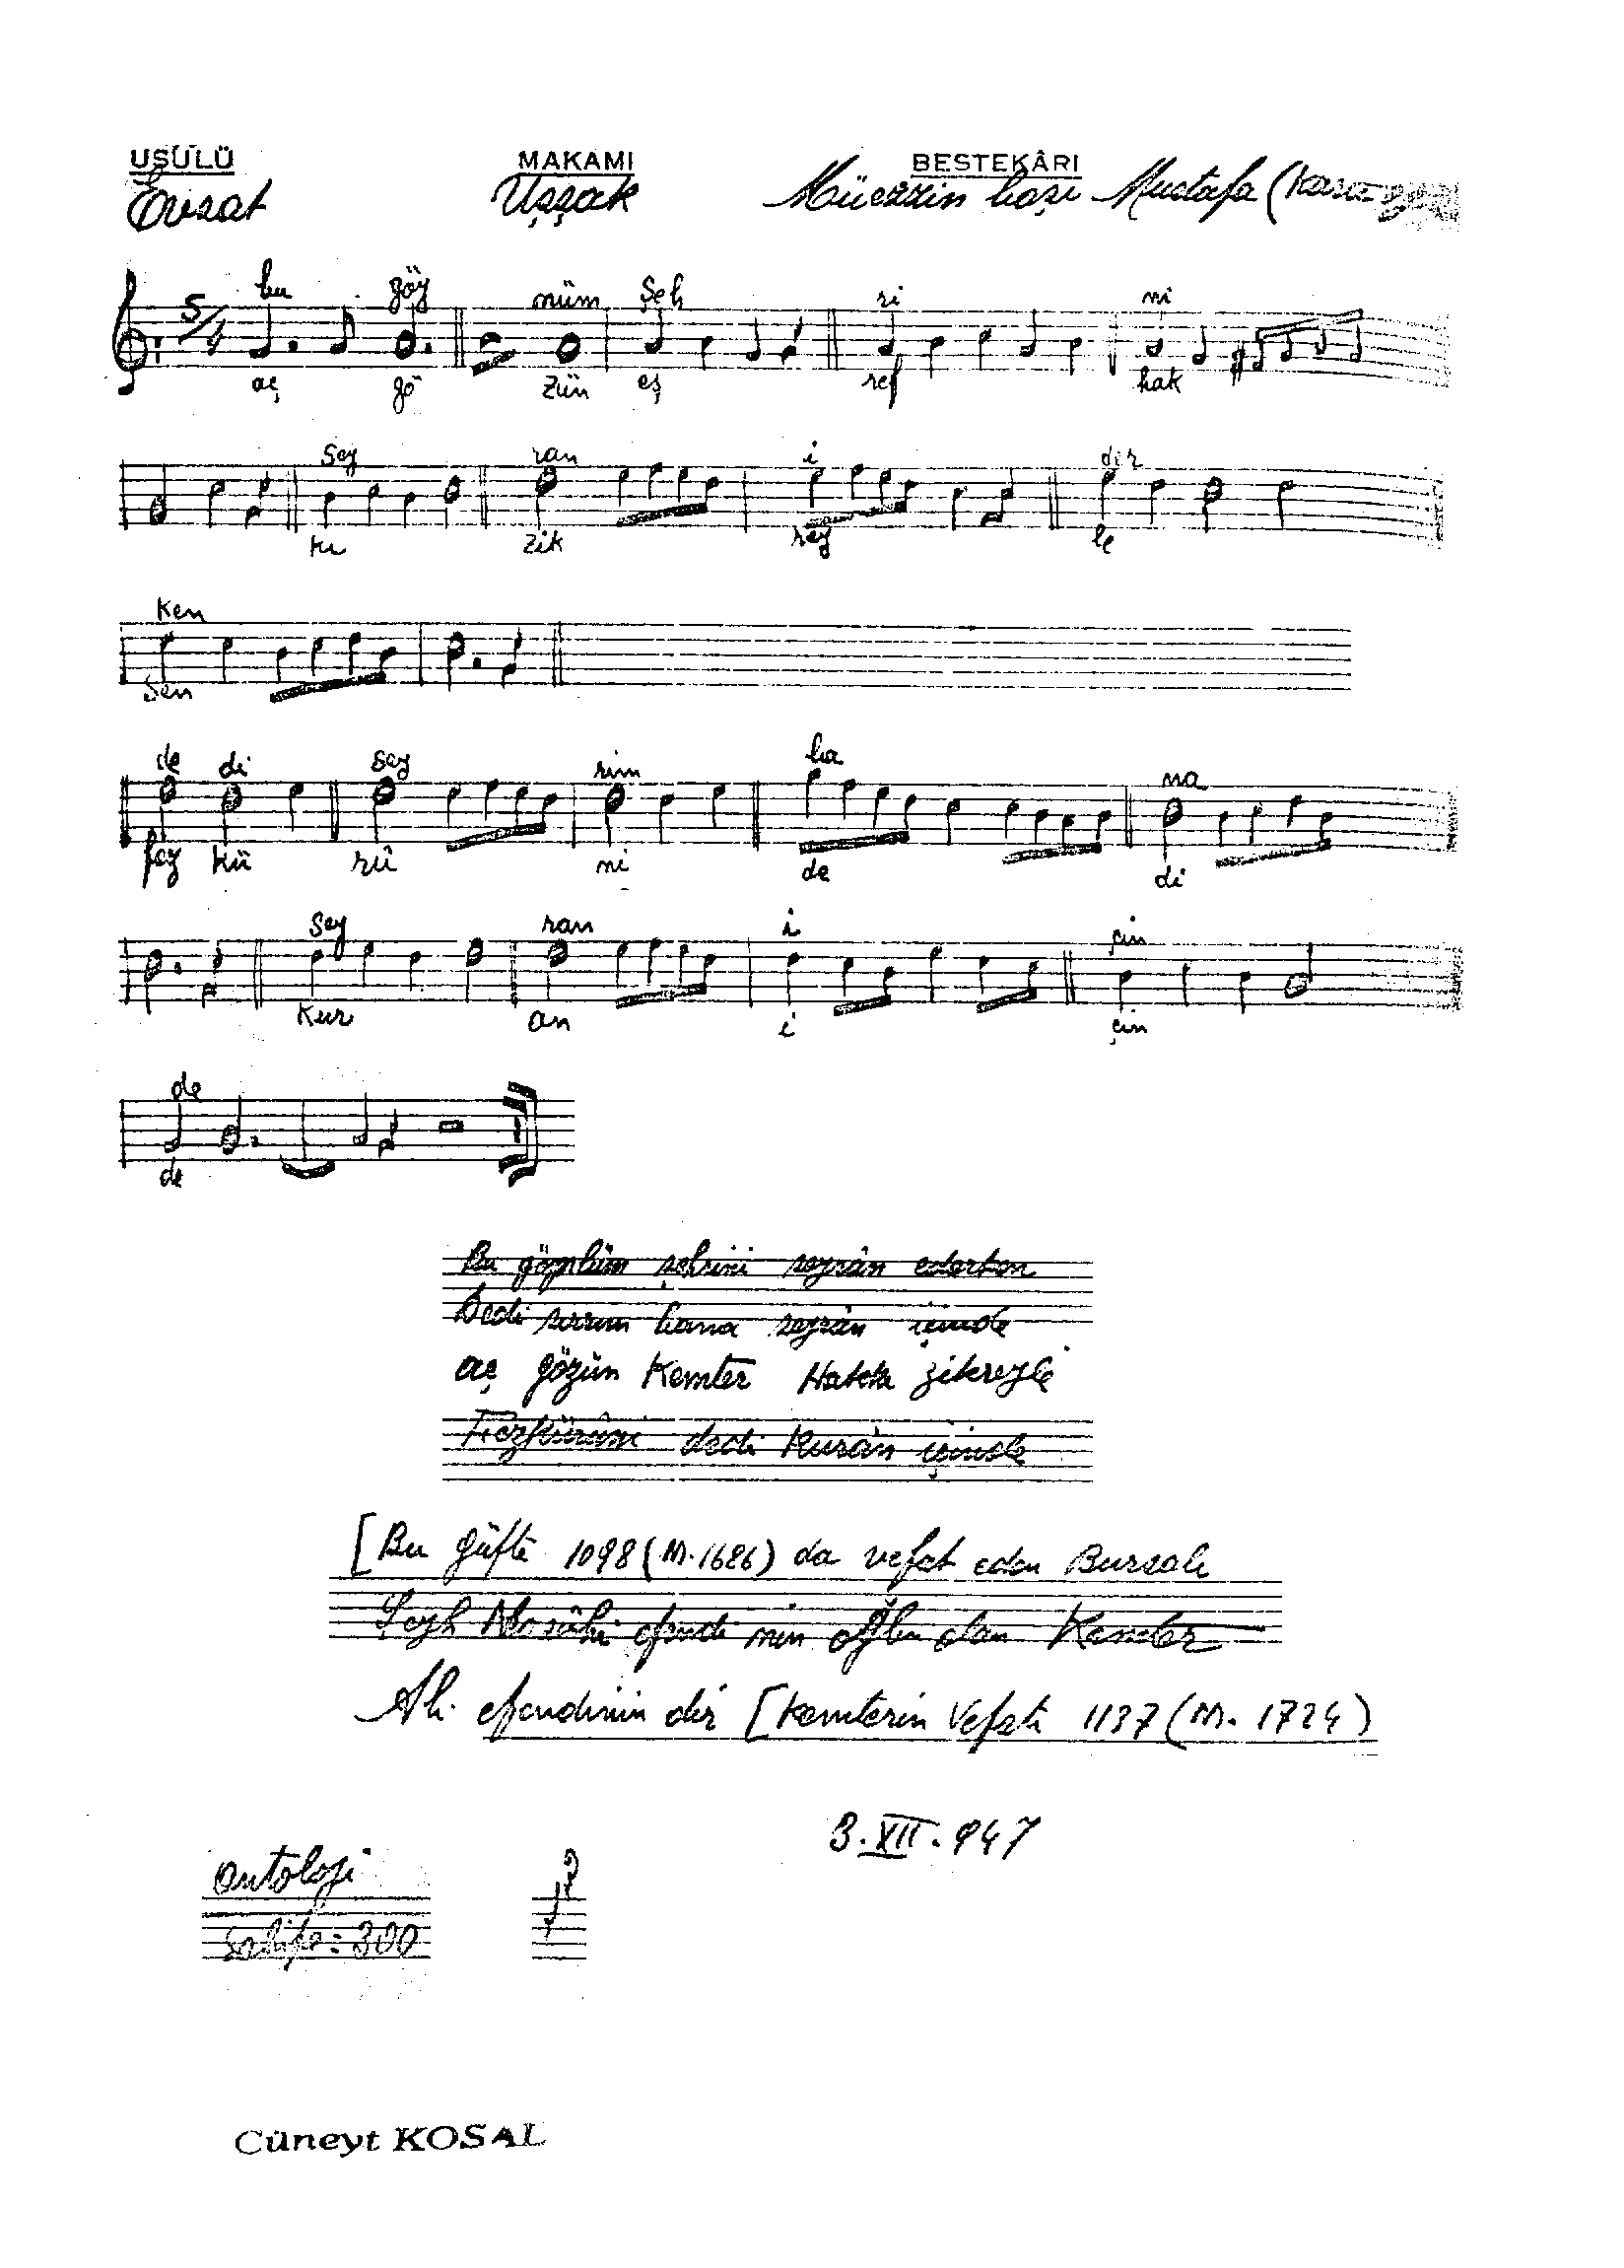 USULÜ MAKAMI BESTEKÂRI
Evsat Uşşak Müezzin başı Mustafa (Kara
5/4 bu göy nüm Şeh ri ni
aç gö zün eş ref hak
Sey ran i dir
kı zik rey le
ken
sen
de di sey rim ba na
fez kü rü ni de di
Sey ran i çin
Kur an i çin
de
de
Bu göynlüm şehrini seyrân ederken
Dedi sırrım bana seyrân içinde
aç gözün Kemter Hakkı zikreyle
Fezkürûni dedi Kurân içinde
[Bu güfte 1098 (M.1686) da vefat eden Bursalı
Şeyh efendi nin oğlu olan Kemter
Ali efendinin dir [Kemterin Vefatı 1137 (M. 1724)
3.XII.947
Antoloji
Sahife: 300
Cüneyt KOSAL